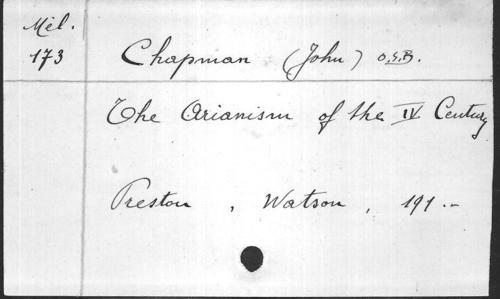 Mél.
173
Chapman (John) O.S.B.
The Arianism of the IV Century
Preston, Watson, 191..